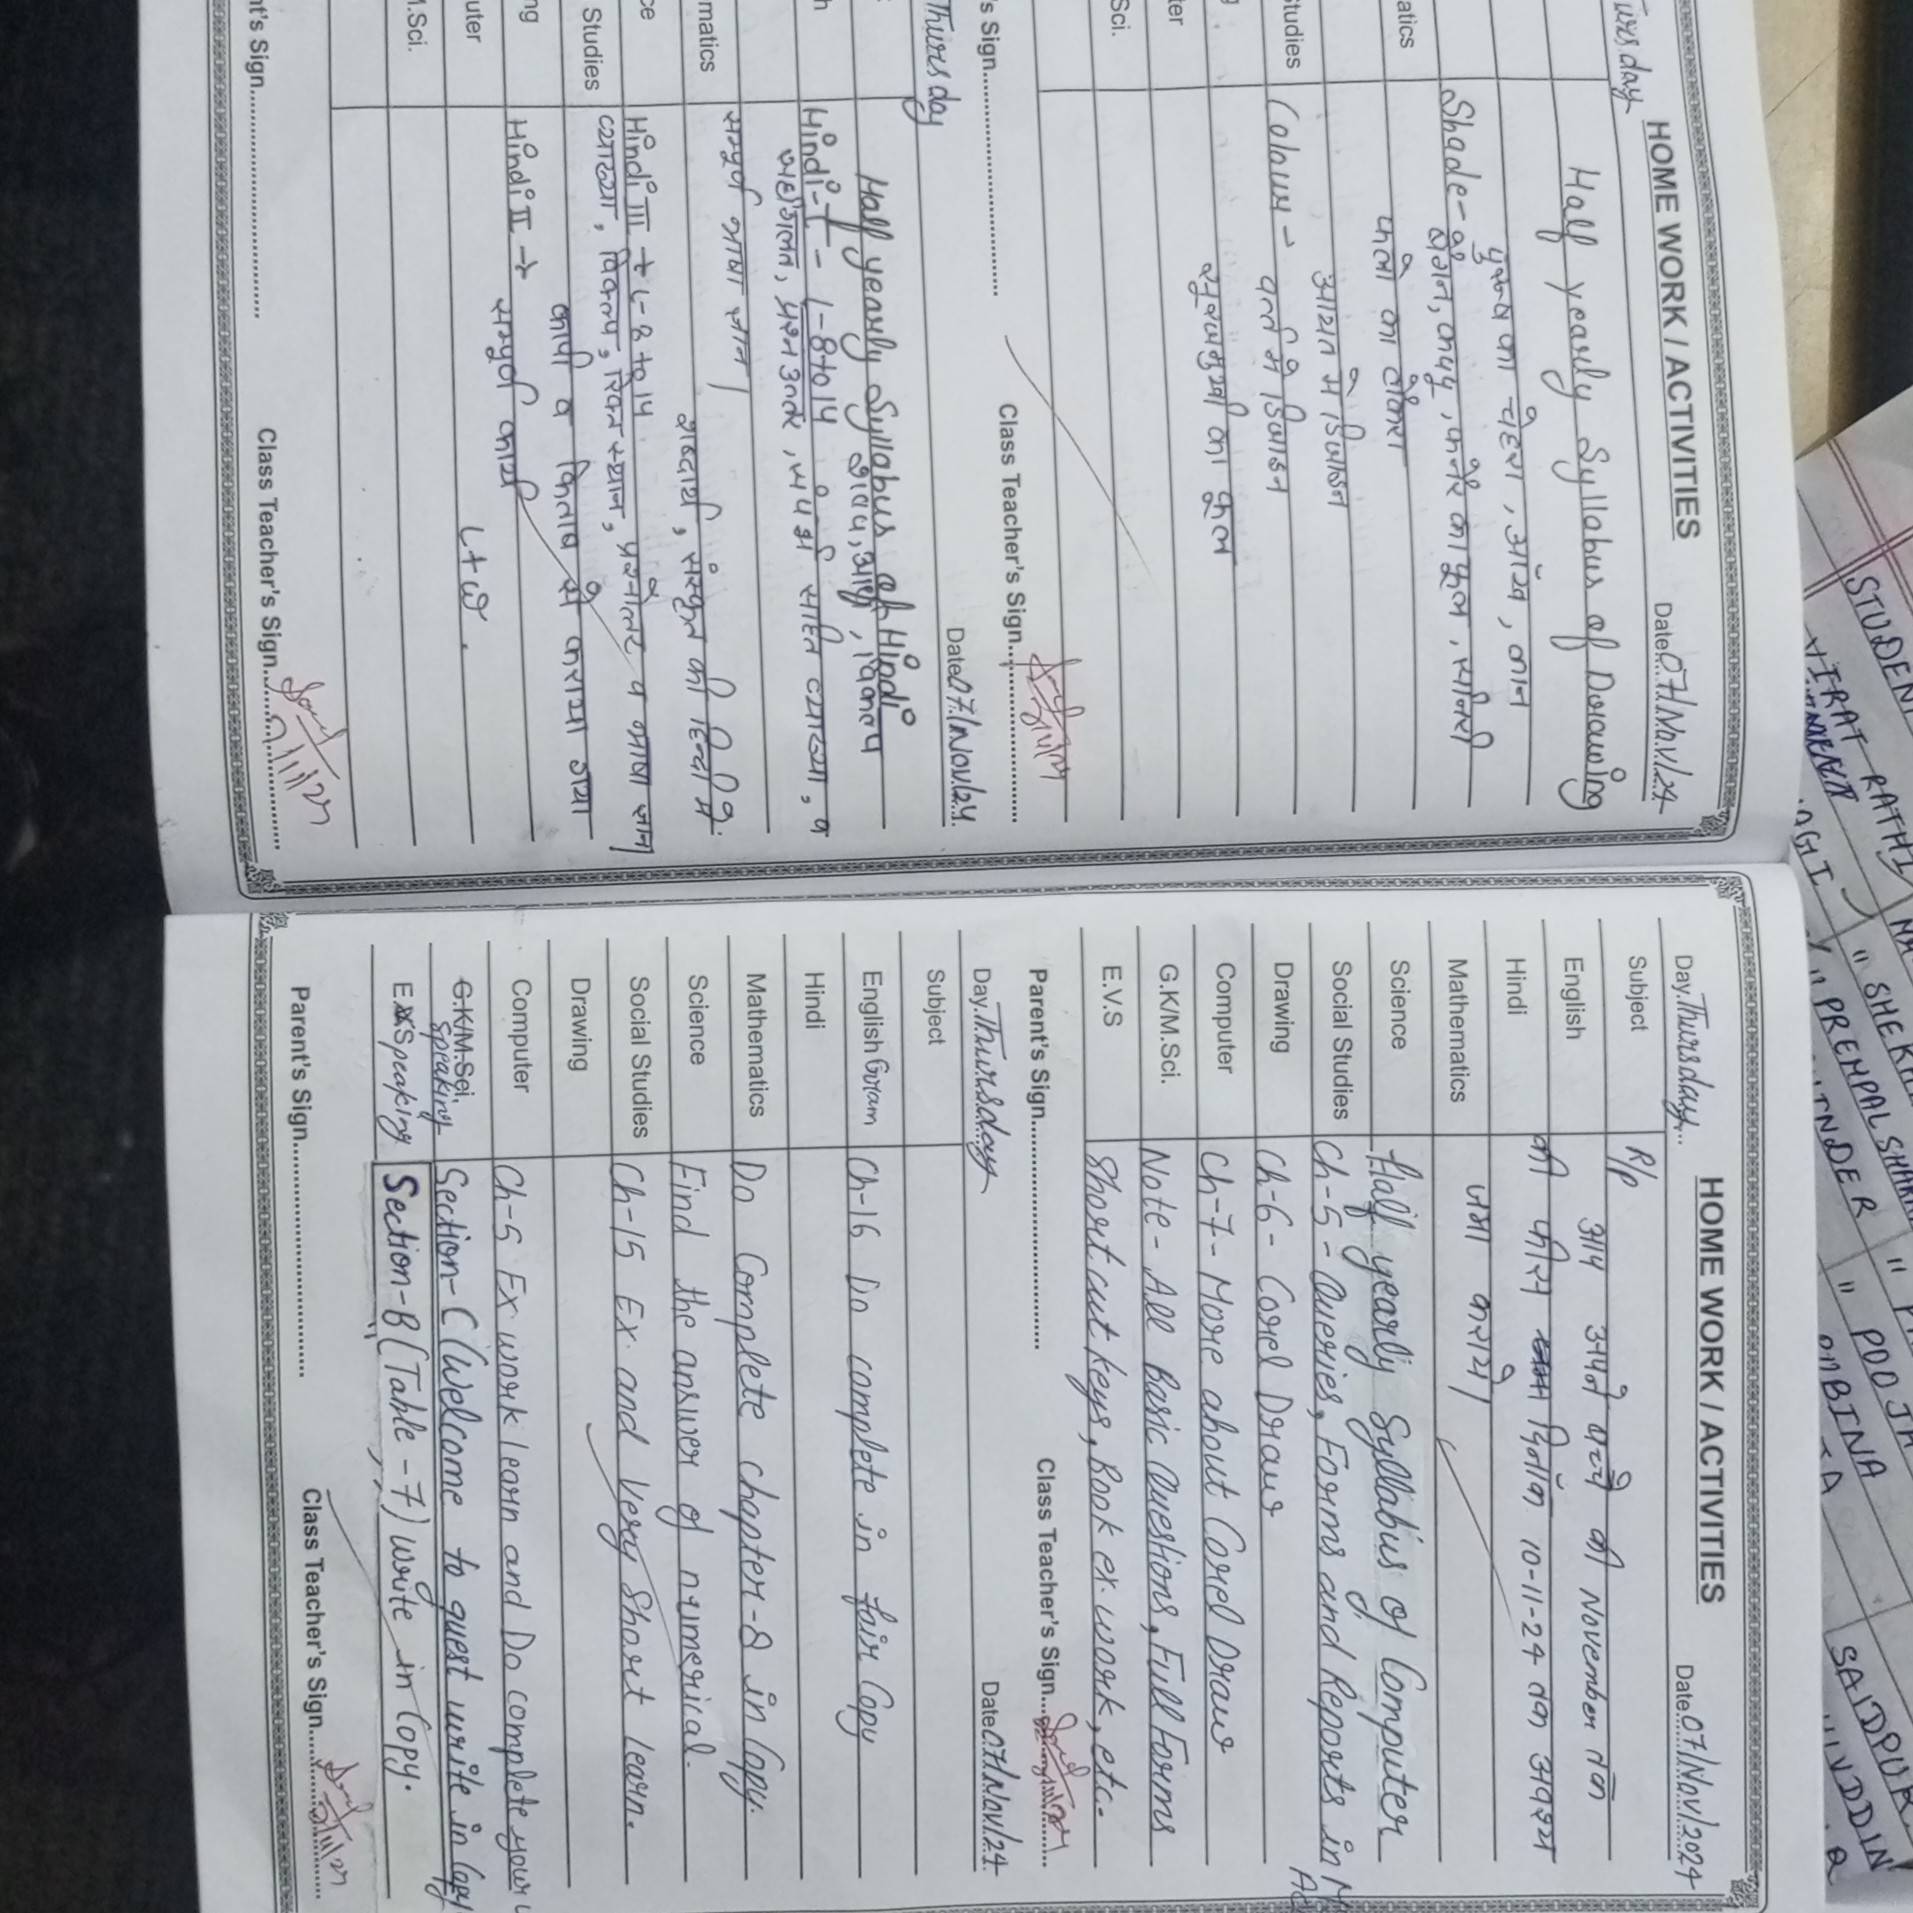 HOME WORK / ACTIVITIES
Date 07/Nov/24
Half yearly Syllabus of Drawing
पुरूष का चेहरा, आँख, कान
Shade-
बैंगन, कप प्लेट, कनेर का फूल, सीनरी
atics फलों का टोकरा
आयत में डिजाइन
Studies Colour → वृत्त में डिजाइन
सूरजमुखी का फूल
ter
Sci.
's Sign Class Teacher's Sign
Thursday Date 07/Nov/24
Half yearly Syllabus of Hindi
h Hindi-I - L-8 to 14
सही गलत, प्रश्न उत्तर, सप्रसंग सहित व्याख्या, व
सम्पूर्ण भाषा ज्ञान।
matics शब्दार्थ, संस्कृत की हिन्दी में
ce Hindi III → L-8 to 14
Studies व्याख्या, विकल्प, रिक्त स्थान, प्रश्नोत्तर व भाषा ज्ञान
कॉपी व किताब में कराया गया
ng Hindi II → सम्पूर्ण कार्य
uter L+W.
M.Sci.
nt's Sign Class Teacher's Sign
HOME WORK / ACTIVITIES
Day Thursday Date 07/Nov/2024
Subject R/p
English आप अपने बच्चे की November तक
Hindi की फीस दिनाँक 10-11-24 तक अवश्य
Mathematics जमा करायें।
Science Half yearly Syllabus of Computer
Social Studies Ch-5 - Queries, Forms and Reports in
Drawing Ch-6 - Corel Draw
Computer Ch-7- More about Corel Draw
G.K/M.Sci. Note - All Basic Questions, Full Forms
E.V.S Short cut keys, Book ex. work, etc.
Parent's Sign Class Teacher's Sign
Day Thursday Date 07/Nov/24
Subject
English Gram Ch-16 Do complete in fair Copy
Hindi
Mathematics Do Complete chapter-8 in Copy.
Science Find the answer of numerical.
Social Studies Ch-15 Ex. and Very Short Learn.
Drawing
Computer Ch-5 Ex work learn and Do complete your
G.K/M.Sci. Speaking Section-C (Welcome to guest write in Copy
Speaking Section-B (Table-7) write in Copy.
Parent's Sign Class Teacher's Sign
STUDEN
VIRAT RATHI
" SHEK
" PREMPAL SHAR
" POOJA
SAIDPUR